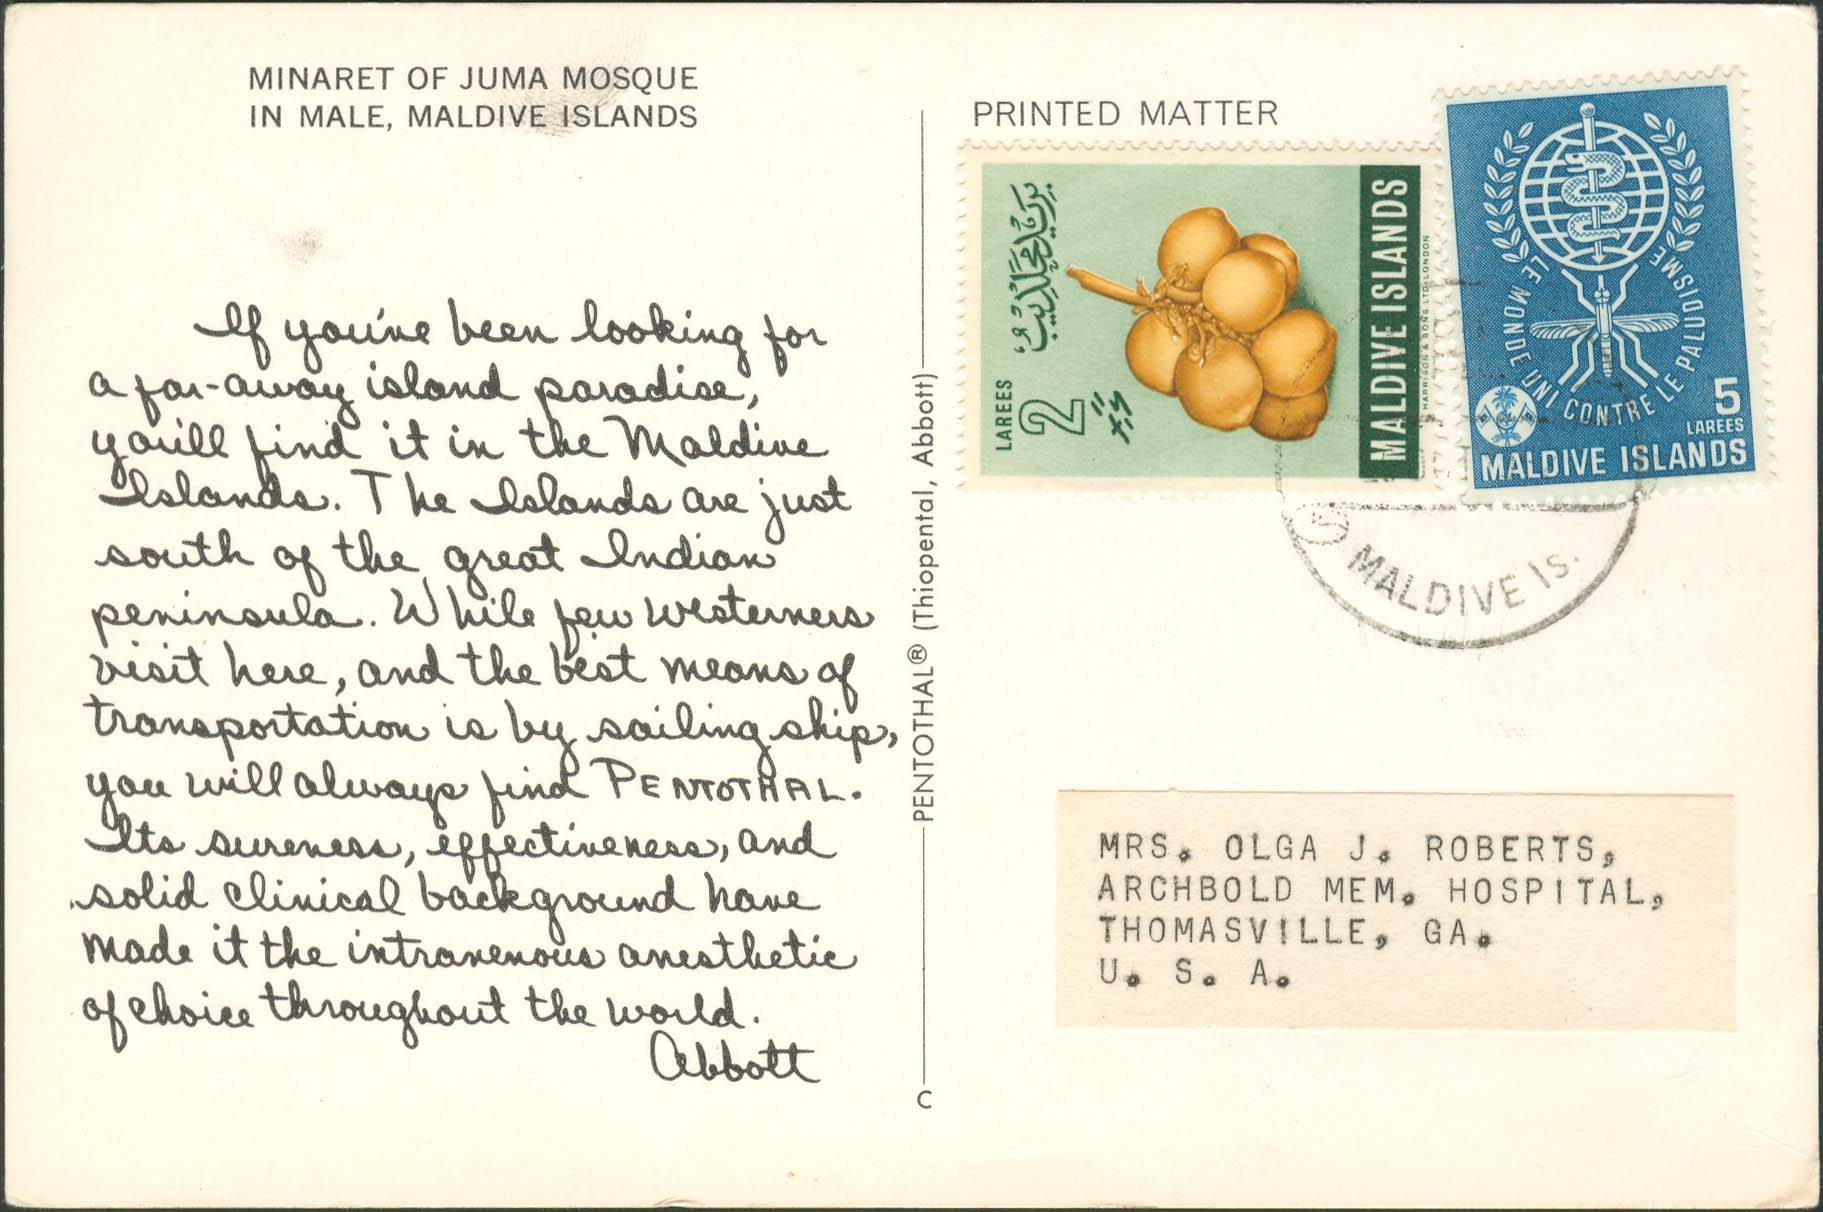 MINARET OF JUMA MOSQUE
IN MALE, MALDIVE ISLANDS
If you've been looking for
a far-away island paradise,
you'll find it in the Maldive
Islands. The Islands are just
south of the great Indian
peninsula. While few westerners
visit here, and the best means of
transportation is by sailing ship,
you will always find PENTOTHAL.
Its sureness, effectiveness, and
solid clinical background have
made it the intravenous anesthetic
of choice throughout the world.
Abbott
PENTOTHAL® (Thiopental, Abbott)
C
PRINTED MATTER
LAREES
2
MALDIVE ISLANDS
HARRISON & SONS LTD LONDON
LE MONDE UNI CONTRE LE PALUDISME
5
LAREES
MALDIVE ISLANDS
MALDIVE Is.
MRS. OLGA J. ROBERTS,
ARCHBOLD MEM. HOSPITAL,
THOMASVILLE, GA.
U. S. A.